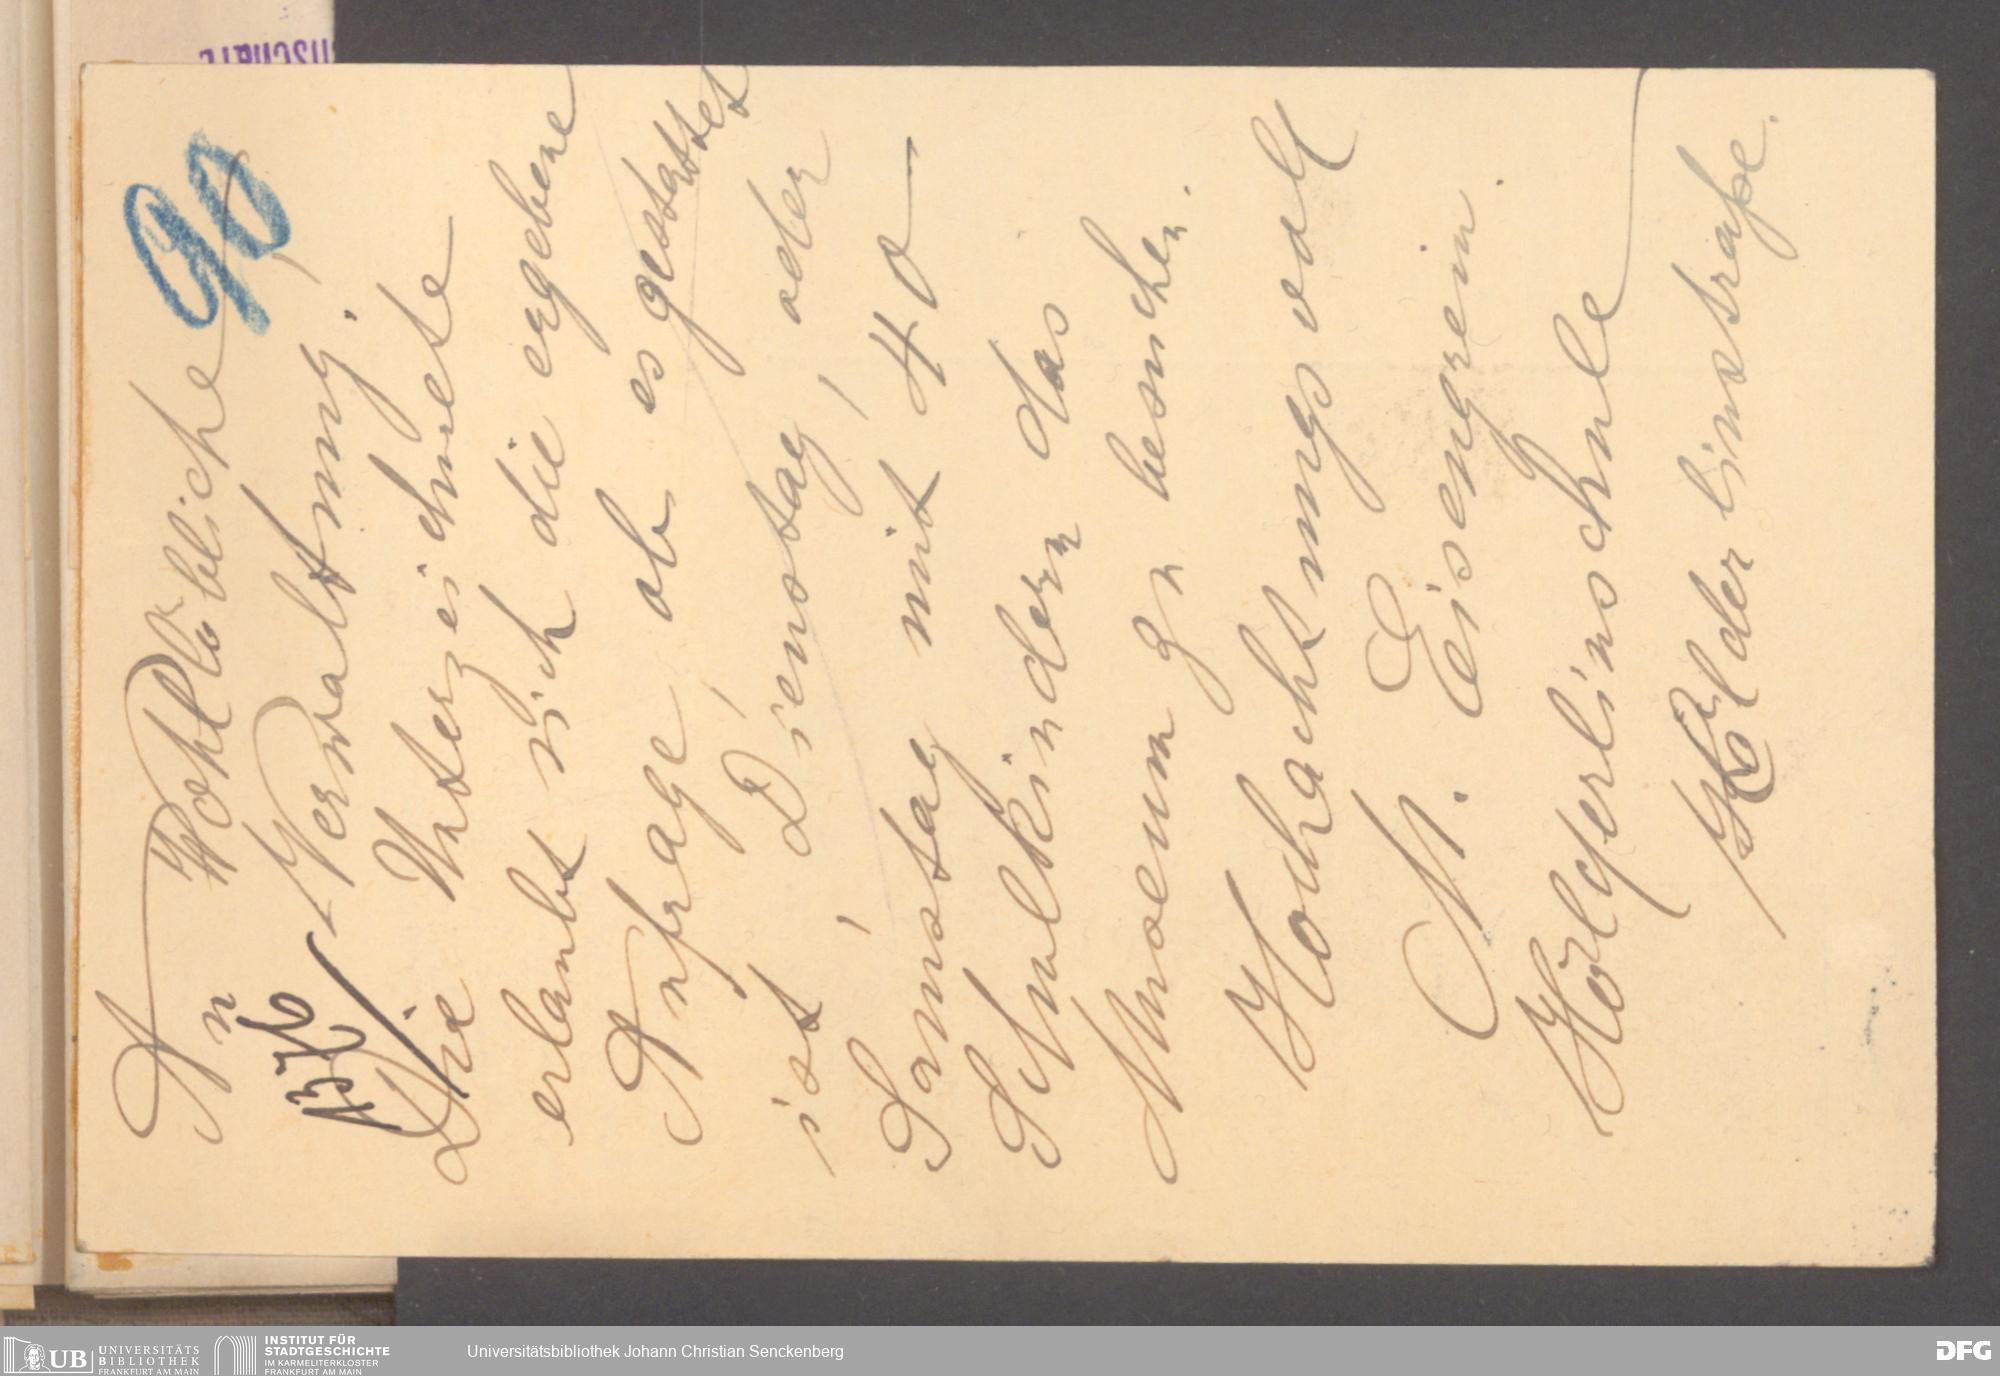 90
An Wohllöbliche
Verwaltung.
Die Unterzeichnete
erlaubt sich die ergebene
Anfrage, ob es gestattet
ist, Dienstag, oder
Samstag mit 40
Schulkindern das
Museum zu besuchen.
Hochachtungsvoll
M. Eisengrein.
Hölderlinschule
Hölderlinstraße.
UB
UNIVERSITÄTS
BIBLIOTHEK
FRANKFURT AM MAIN
INSTITUT FÜR
STADTGESCHICHTE
IM KARMELITERKLOSTER
FRANKFURT AM MAIN
Universitätsbibliothek Johann Christian Senckenberg
DFG